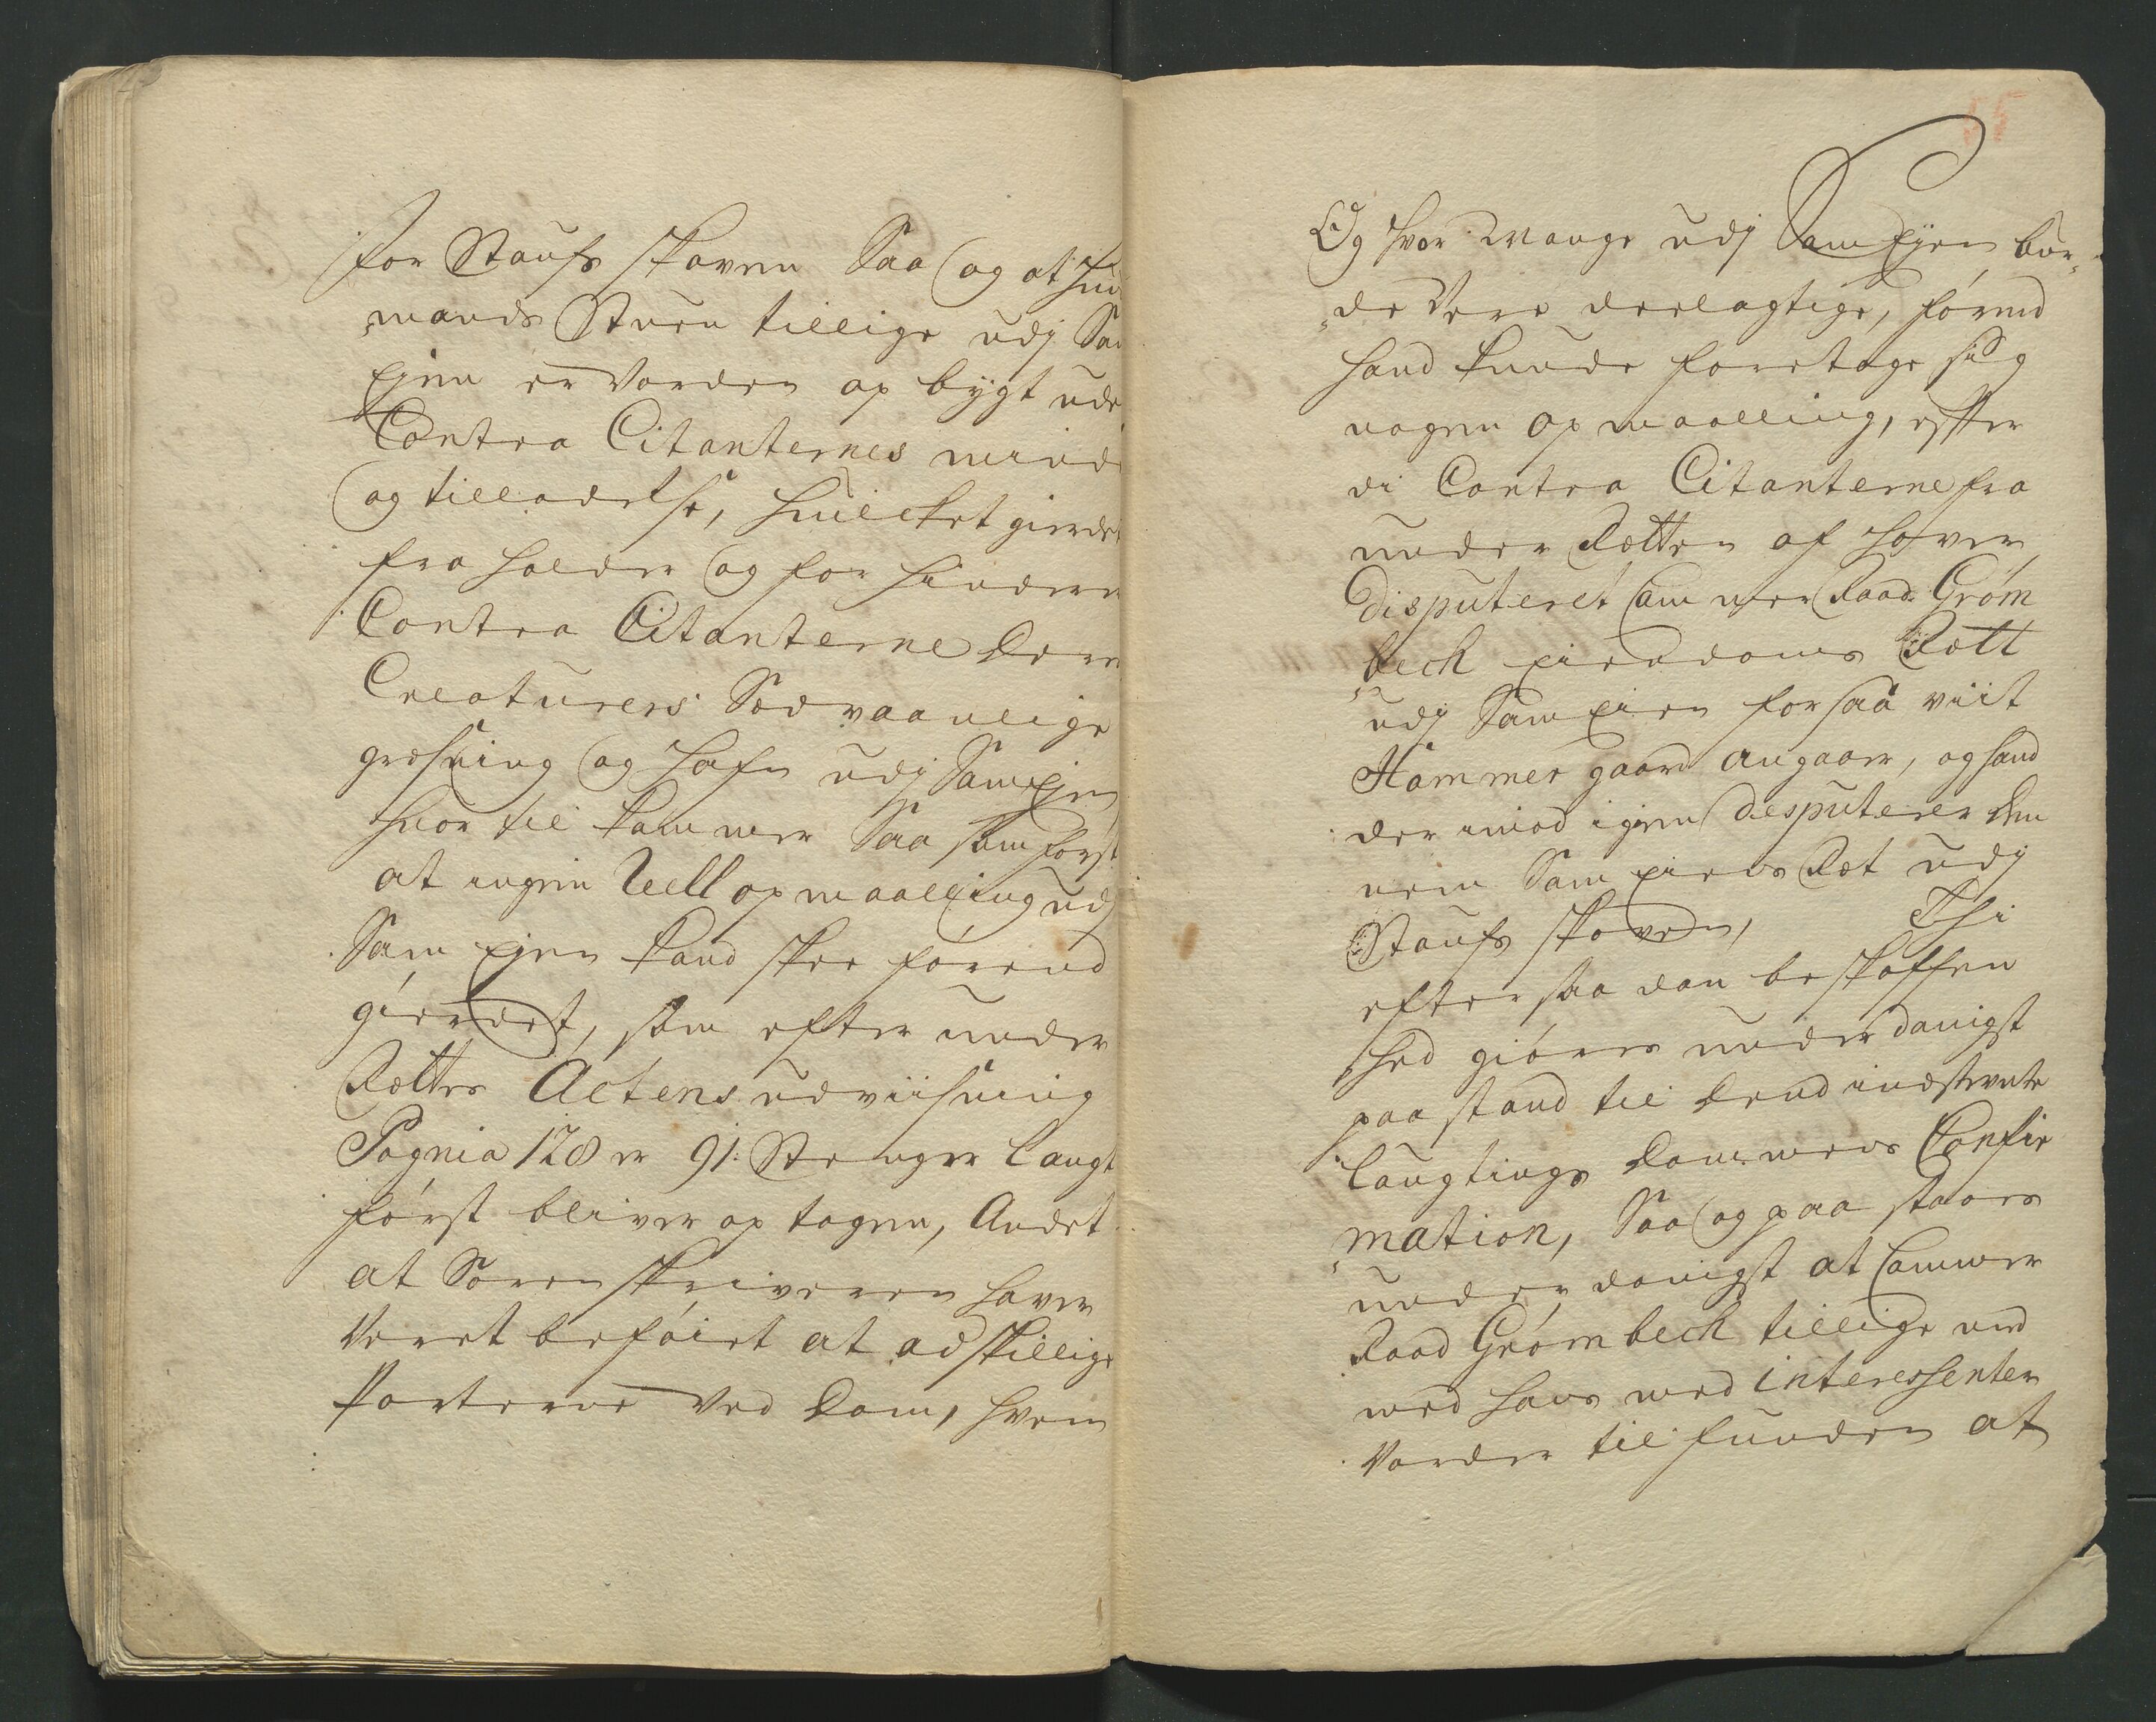 for Staufs skoven Saa og at Huus
mands Stuen tillige udj Sam
Ejen er vorden op bygt uden
Contra Citanternes minde
og tilladelse, huilcket gierde
fra holder og for hindrer
Contra Citanterne deres
Creaturers Sædvaanlige
græsning og Hafn udj SamEjen
huor til kommer Saa som først
at ingen Uell opmaalling udj
Sam Ejen kand skee førend
gierdet, som efter under
Rættes Actens udviisning
Pagnia 128 er 91: Stenger langt
først bliver op tagen, Andet
at Sorenskriveren haver
Veret beføiet at adskillige
Parterne Ved Dom, hvem
55
Og hvor mange udj SamEjen bur
de Vere deelagtige, førend
hand kunde foretage sig
nogen opmaalling, efter
di Contra Citanterne fra
under Rætten af haver
disputeret Cammer Raad Grøm
beck Eiendoms Rætt
udj SamEien for saa viit
Hammer gaard angaaer, og hand
der imod igien disputerer dem
nem Sam Eiens Ræt udj
Staufs skoven, Thi
efter saa dan beskaffen
hed giøres underdanigst
paastand til dend indstevnte
Laugtings dommens Confir
mation, Saa og paastaaes
underdanigst at Cammer
Raad Grømbeck tillige med
med hans med interessenter
Vorder tilfunden at